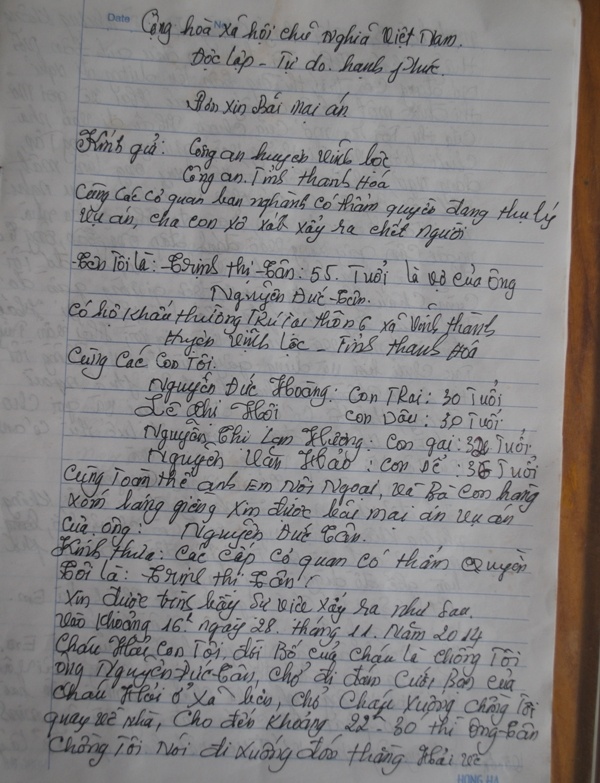 Date No
Cộng hoà xã hội chủ nghĩa Việt Nam.
Độc lập - Tự do. hạnh phúc.
Đơn xin Bãi mại án
Kính gửi: Công an huyện Vĩnh lộc
Công an. Tỉnh thanh Hóa
Cùng các cơ quan ban nghành có thẩm quyền đang thụ lý
vụ án, cha con xô xát xẩy ra chết người
-Tên Tôi là: -Trịnh thị -Tân: 55. Tuổi là vợ của ông
Nguyễn Đức -Tân.
Có hộ khẩu thường TRú tại thôn 6 xã Vĩnh thành
Huyện Vĩnh Lộc - Tỉnh thanh Hoá
Cùng Các Con Tôi.
Nguyễn Đức Hoàng: Con TRai: 30 Tuổi
Lê thị Hôi Con Dâu: 30 Tuổi
Nguyễn Thị Lan Hương: Con gái: Tuổi
Nguyễn Văn Hảo: Con Rể: Tuổi
Cùng Toàn thể anh Em Nội Ngoại, và Bà Con hàng
xóm láng giềng xin được bãi mại án vụ án
của ông: Nguyễn Đức Tân.
Kính thưa: Các cấp cơ quan có thẩm Quyền
Tôi là: -Trịnh thị -Tân!
Xin được trình bầy sự việc xẩy ra như sau.
Vào khoảng 16h ngày 28. tháng 11. Năm 2014
Cháu Hải Con Tôi, Bố của cháu là chồng Tôi
ông Nguyễn-Đức-Tân, chở đi đám cưới Bạn của
Cháu Hải ở xã bên, chở Cháu xuống chồng Tôi
quay về nhà, Cho đến khoảng 22h-30 thì ông-Tân
Chồng Tôi Nói đi xuống đón thằng Hải về
HONG HA